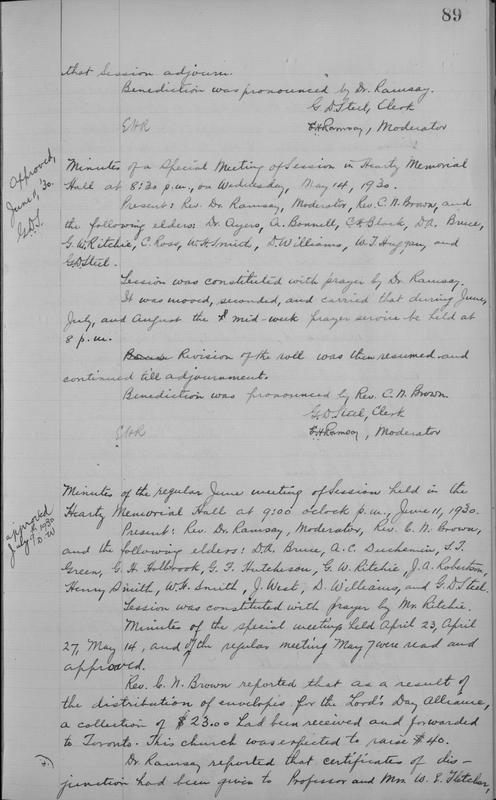 89
that Session adjourn.
Benediction was pronounced by Dr. Ramsay.
G. D. Steel, Clerk
EHR
E. H. Ramsay, Moderator
Approved,
June 11, '30.
G.D.S.
Minutes of a Special Meeting of Session in Hearty Memorial
Hall at 8:30 p.m., on Wednesday, May 14, 1930.
Present: Rev. Dr. Ramsay, Moderator, Rev. C. N. Brown, and
the following elders: Dr. Ayers, A. Bonnell, C. H. Black, D.A. Bruce,
G. W. Ritchie, C. Ross, W. H. Smith, D. Williams, W. T. Huggan, and
G.D. Steel.
Session was constituted with prayer by Dr. Ramsay.
It was moved, seconded, and carried that during June,
July, and August the mid-week prayer service be held at
8 p.m.
Revision of the roll was then resumed and
continued till adjournment.
Benediction was pronounced by Rev. C. N. Brown.
G. D. Steel, Clerk
EHR
E. H. Ramsay, Moderator
approved
July 9th 1930
D. W
Minutes of the regular June meeting of Session held in the
Hearty Memorial Hall at 9:00 oclock p.m., June 11, 1930.
Present: Rev. Dr. Ramsay, Moderator, Rev. C. N. Brown,
and the following elders: D.A. Bruce, A. C. Duchemin, S.T.
Green, G. H. Holbrook, G. F. Hutcheson, G. W. Ritchie, J. A. Robertson,
Henry Smith, W. H. Smith, J. West, D. Williams, and G.D. Steel.
Session was constituted with prayer by Mr. Ritchie.
Minutes of the special meetings held April 23, April
27, May 14, and of the regular meeting May 7 were read and
approved.
Rev. C. N. Brown reported that as a result of
the distribution of envelopes for the Lord's Day Alliance,
a collection of $23.00 had been received and forwarded
to Toronto. This church was expected to raise $40.
Dr. Ramsay reported that certificates of dis-
junction had been given to Professor and Mrs. W. E. Fletcher,